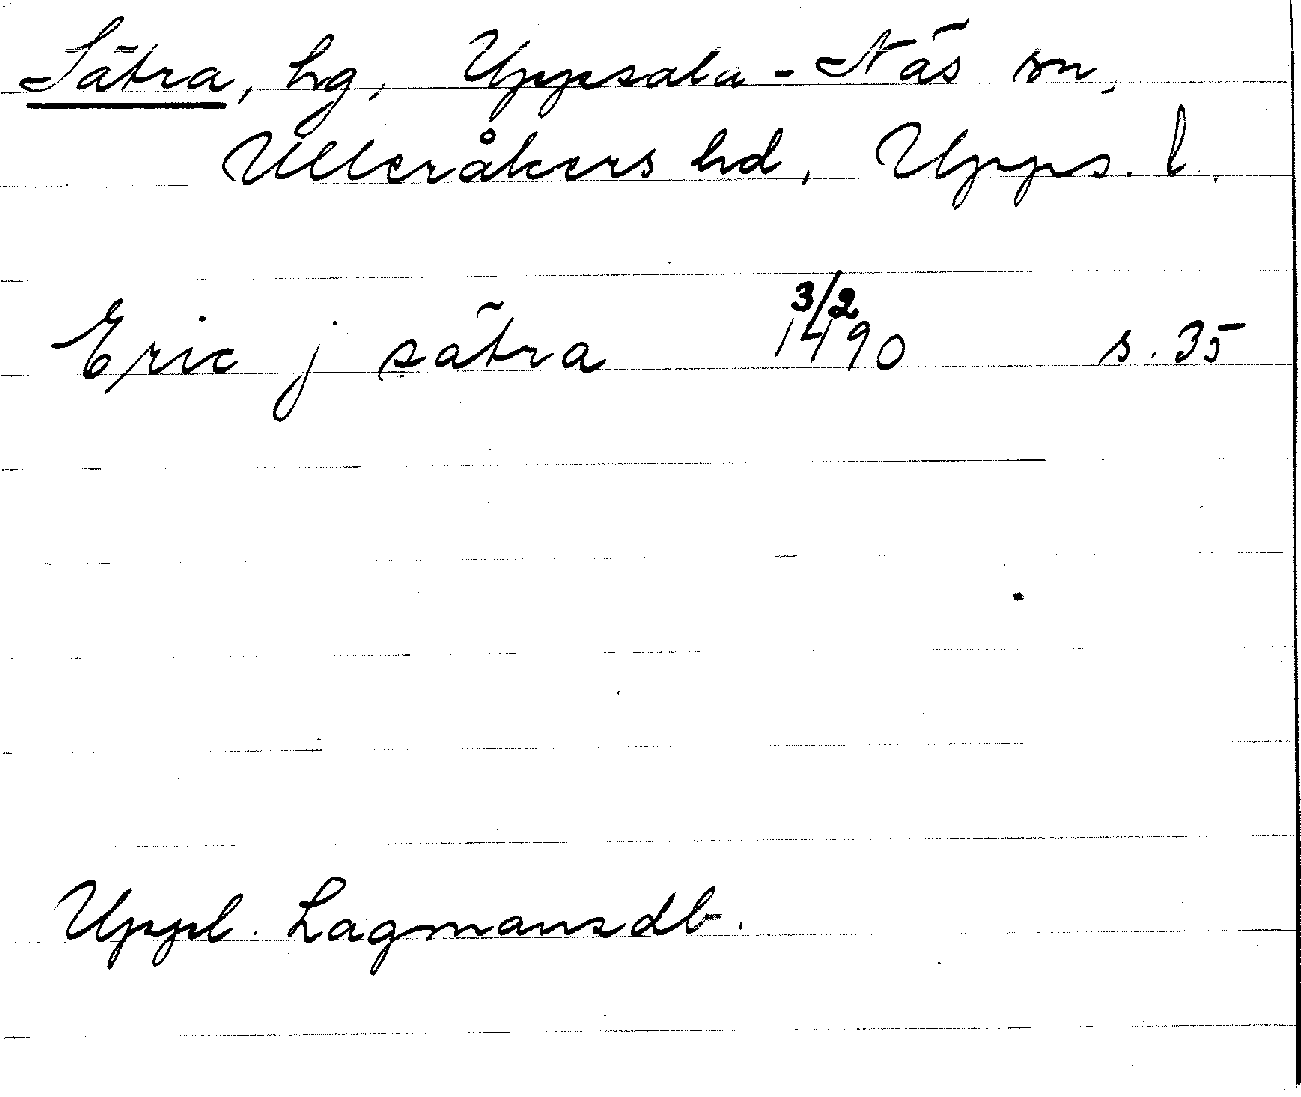 Sätra, hg, Uppsala-Näs sn,
Ulleråkers hd, Upps. l.
Eric j sätra 3/2 1490 s. 35
Uppl. Lagmansdb.